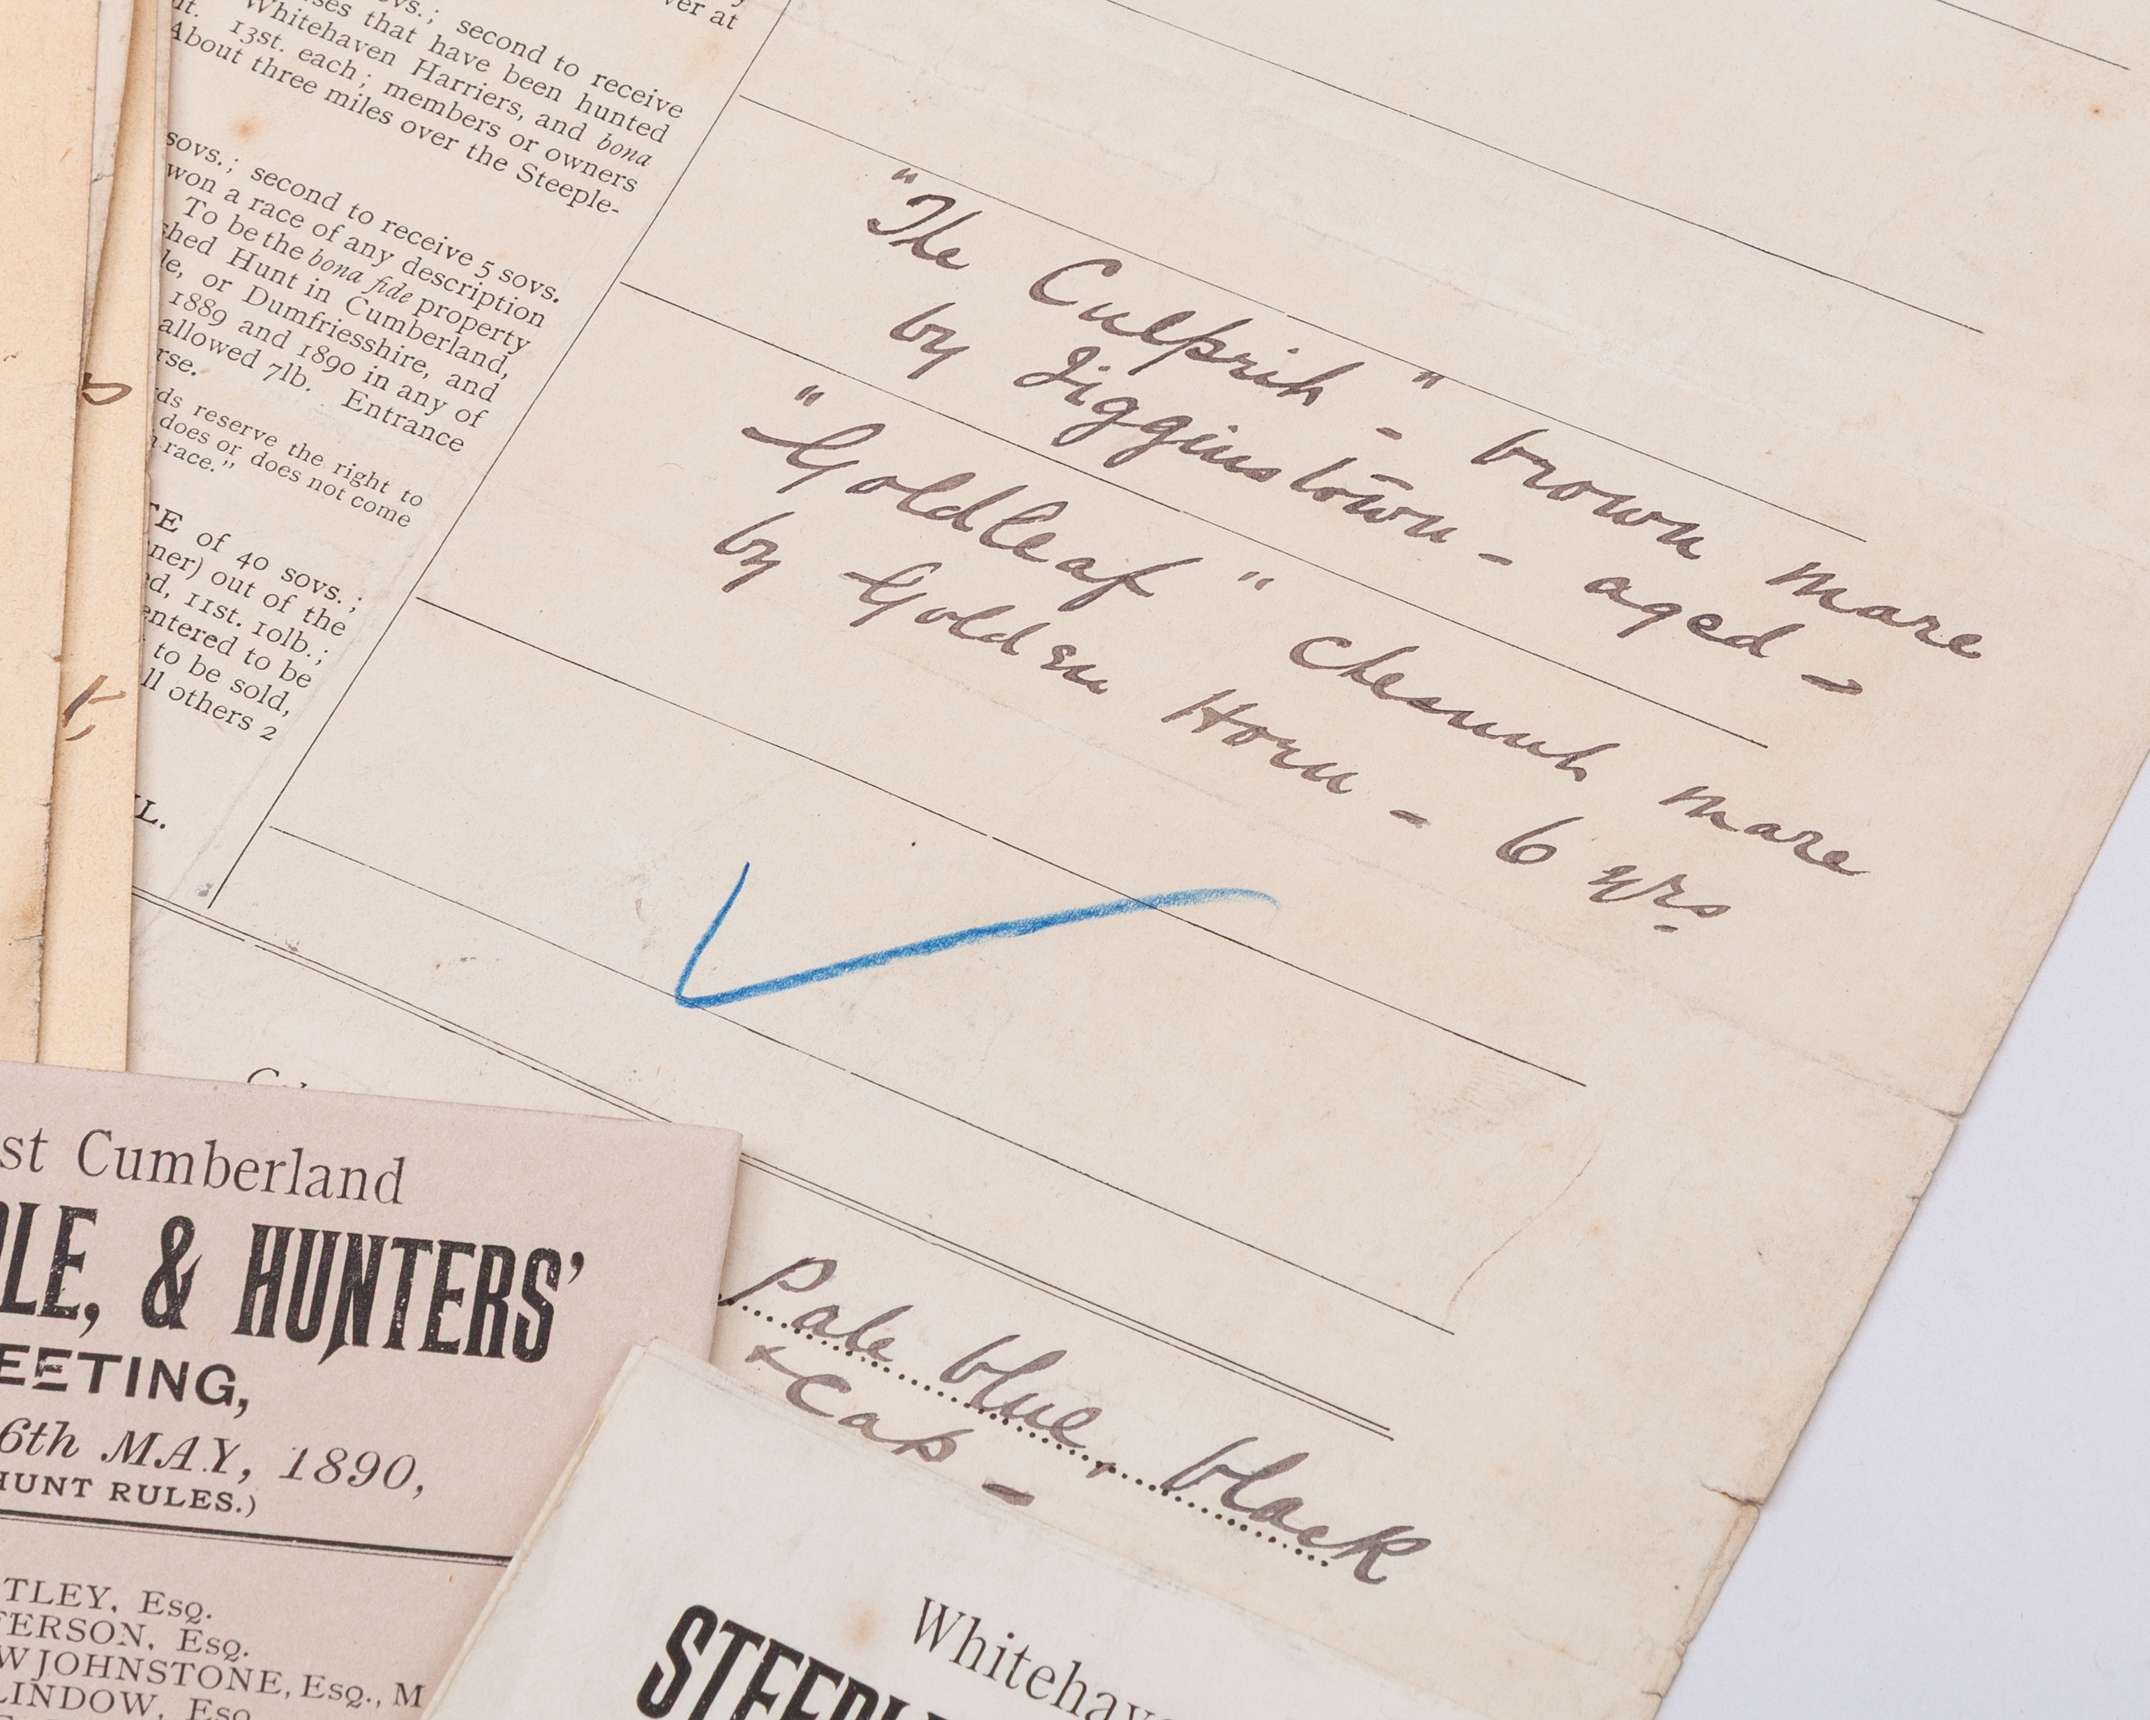 second to receive
that have been hunted
Whitehaven Harriers, and bona
13st. each; members or owners
About three miles over the Steeple-
sovs.; second to receive 5 sovs.
won a race of any description
To be the bona fide property
Hunt in Cumberland,
or Dumfriesshire, and
1889 and 1890 in any of
allowed 7lb. Entrance
reserve the right to
does or does not come
race."
of 40 sovs.;
out of the
11st. 10lb.;
entered to be
to be sold,
others 2
"The Culprit" - brown mare
by Jigginstown - aged -
"Goldleaf" chesnut mare
by Golden Horn - 6 yrs
Pale blue, black
+ Cap -
st Cumberland
DLE, & HUNTERS'
EETING,
6th MAY, 1890,
HUNT RULES.)
TLEY, Esq.
FERSON, Esq.
W JOHNSTONE, Esq., M
LINDOW, Esq
Whitehav
STEEPL